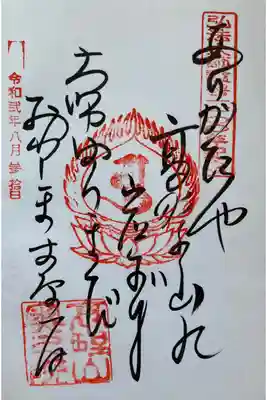 ありがたや
高野の山の
岩かげに
大師はいまだ
おわしますなる
令和弐年八月参拾日